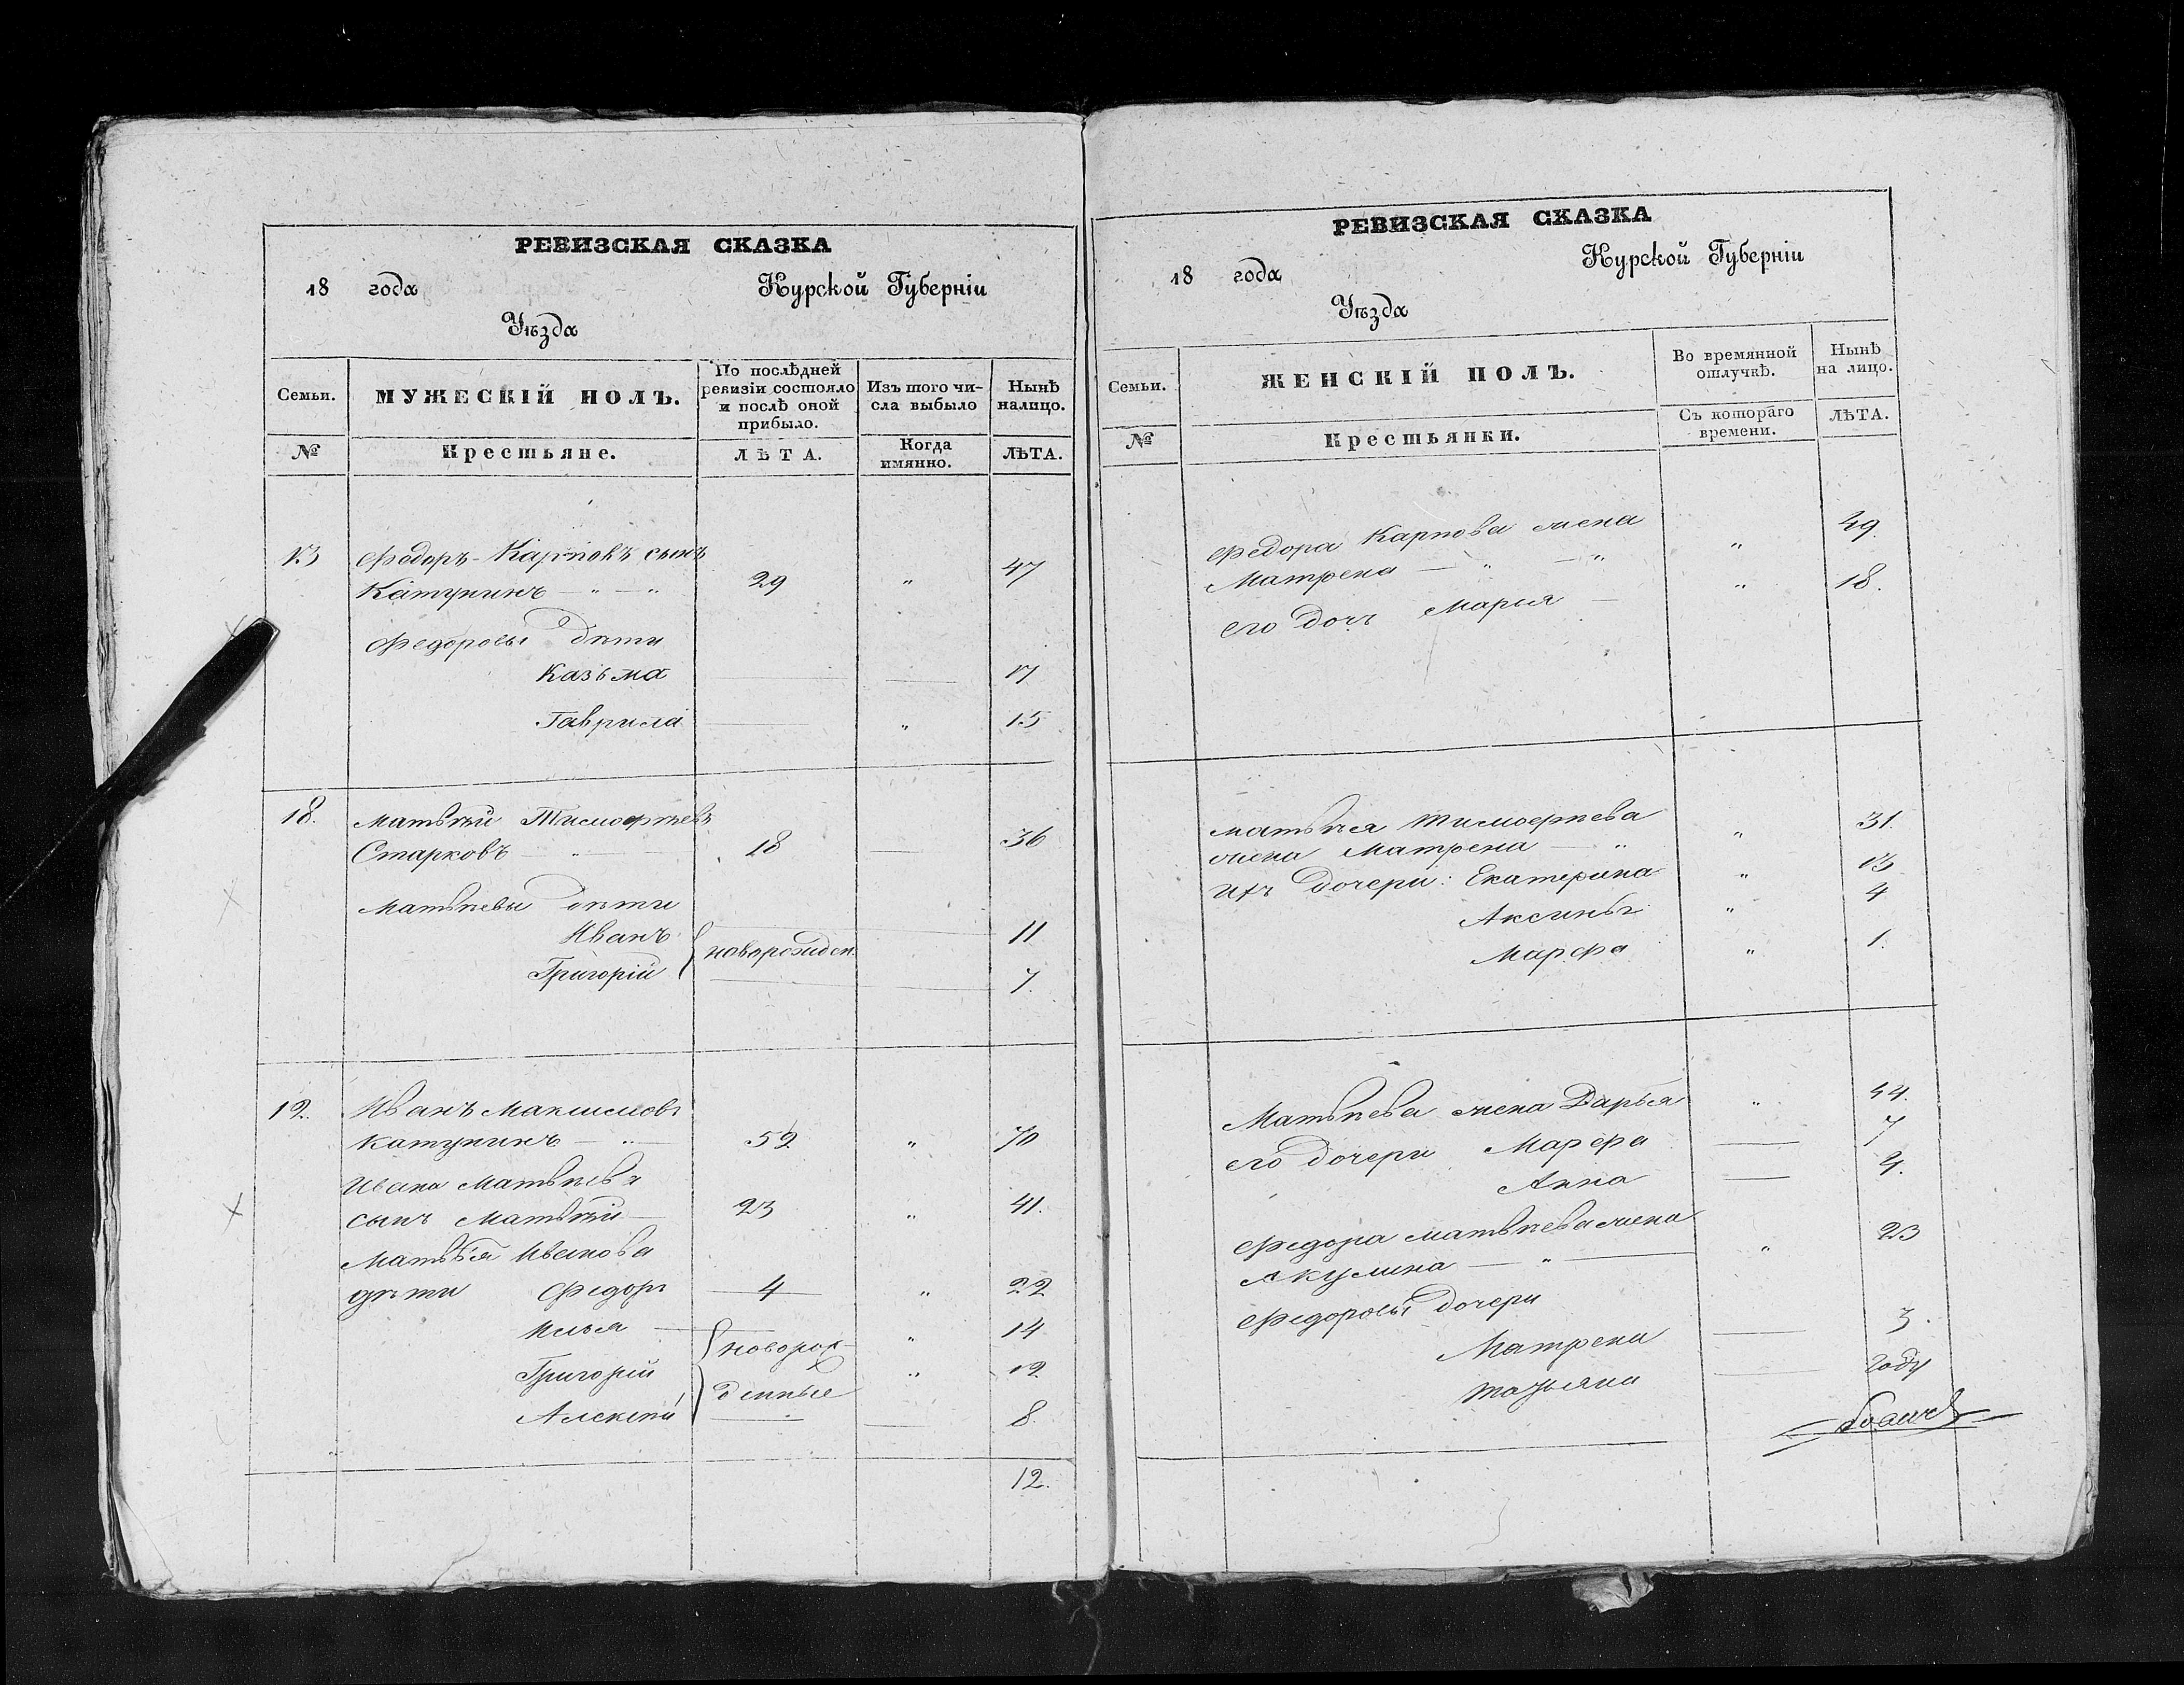 РЕВИЗСКАЯ СКАЗКА
18 года Курской Губерніи
Уѣзда
Семьи. МУЖЕСКІЙ ПОЛЪ. По послѣдней ревизіи состояло и послѣ оной прибыло. Изъ того числа выбыло Нынѣ налицо.
№ Крестьяне. ЛѢТА. Когда имянно. ЛѢТА.
Федоръ Карповъ сынъ
Катунинъ — „ — „ 29 „ 47
Федоровы дѣти
Казьма 17
Гаврила „ 15
18. Матвѣй Тимофѣевъ
Старковъ — „ — 18 — 36
Матвѣевы дѣти
Иванъ 11
новорожден.
Григорій 7.
19. Иванъ Максимовъ
Катунинъ — „ — 52 „ 70
Ивана Матвѣевъ
сынъ Матвѣй — 23 „ 41.
Матвѣя Иванова
дѣти Федоръ 4 „ 22
Илья „ 14
новорож-
Григорій „ 12
денные
Алексѣй 8.
12.
РЕВИЗСКАЯ СКАЗКА
18 года Курской Губерніи
Уѣзда
Семьи. ЖЕНСКІЙ ПОЛЪ. Во времянной отлучкѣ. Нынѣ на лицо.
№ Крестьянки. Съ котораго времени. ЛѢТА.
Федора Карпова жена
Матрена — „ — „ „ 49.
его дочь Марья — „ 18.
Матвѣя Тимофѣева
жена Матрена — „ „ 31.
ихъ дочери: Екатерина „ 13
Аксинья „ 4
Марфа „ 1.
Матвѣева жена Дарья „ 44.
его дочери Марфа — 7
Анна — 4.
Федора Матвѣева жена
Акулина — „ — „ 23
Федоровы дочери
Матрена — 3.
Татьяна — году